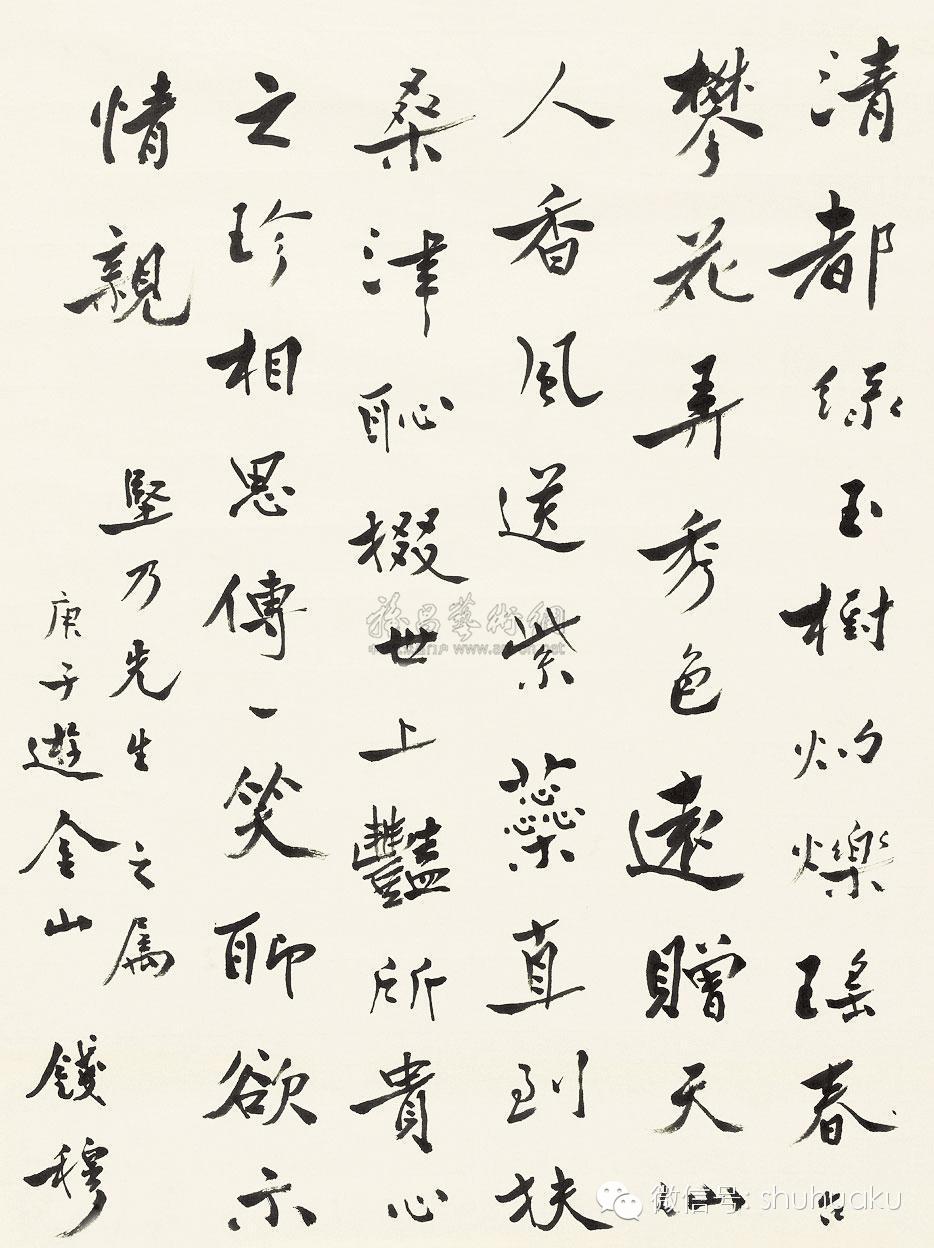 清都綠玉樹灼爍瑤春台
攀花弄秀色遠贈天仙
人香風送紫蘂直到扶
桑津恥掇世上豔所貴心
之珍相思傳一笑聊欲示
情親
堅乃先生之属
庚子遊金山 錢穆
微信号: shuhuaku